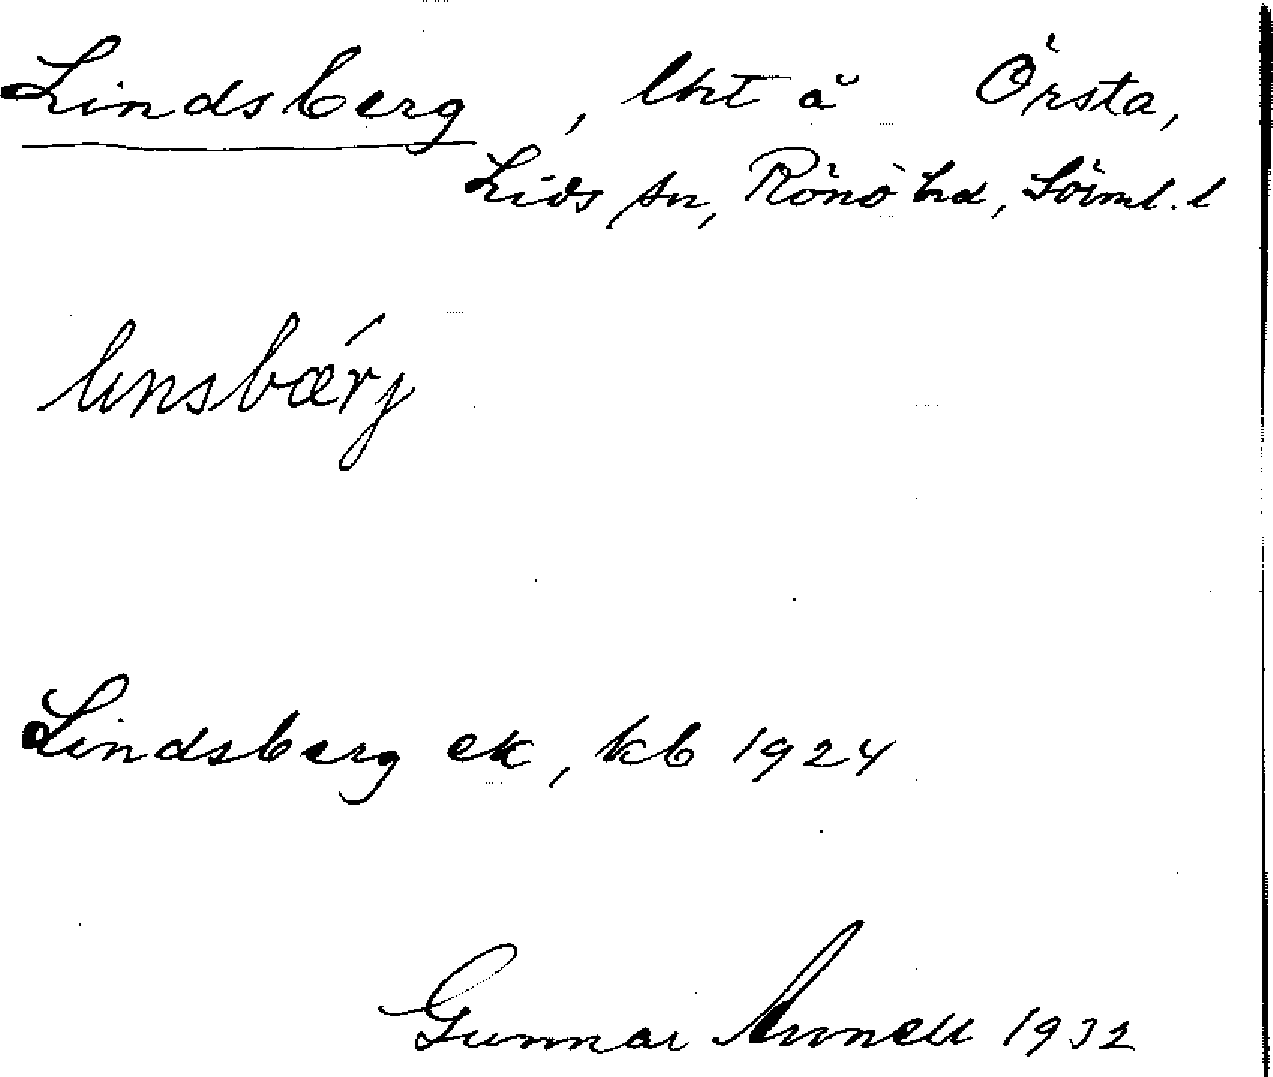 Lindsberg, lht å Örsta,
Lids sn, Rönö hd, Söml. l
linsbærj
Lindsberg ek, kb 1924
Gunnar Annell 1932